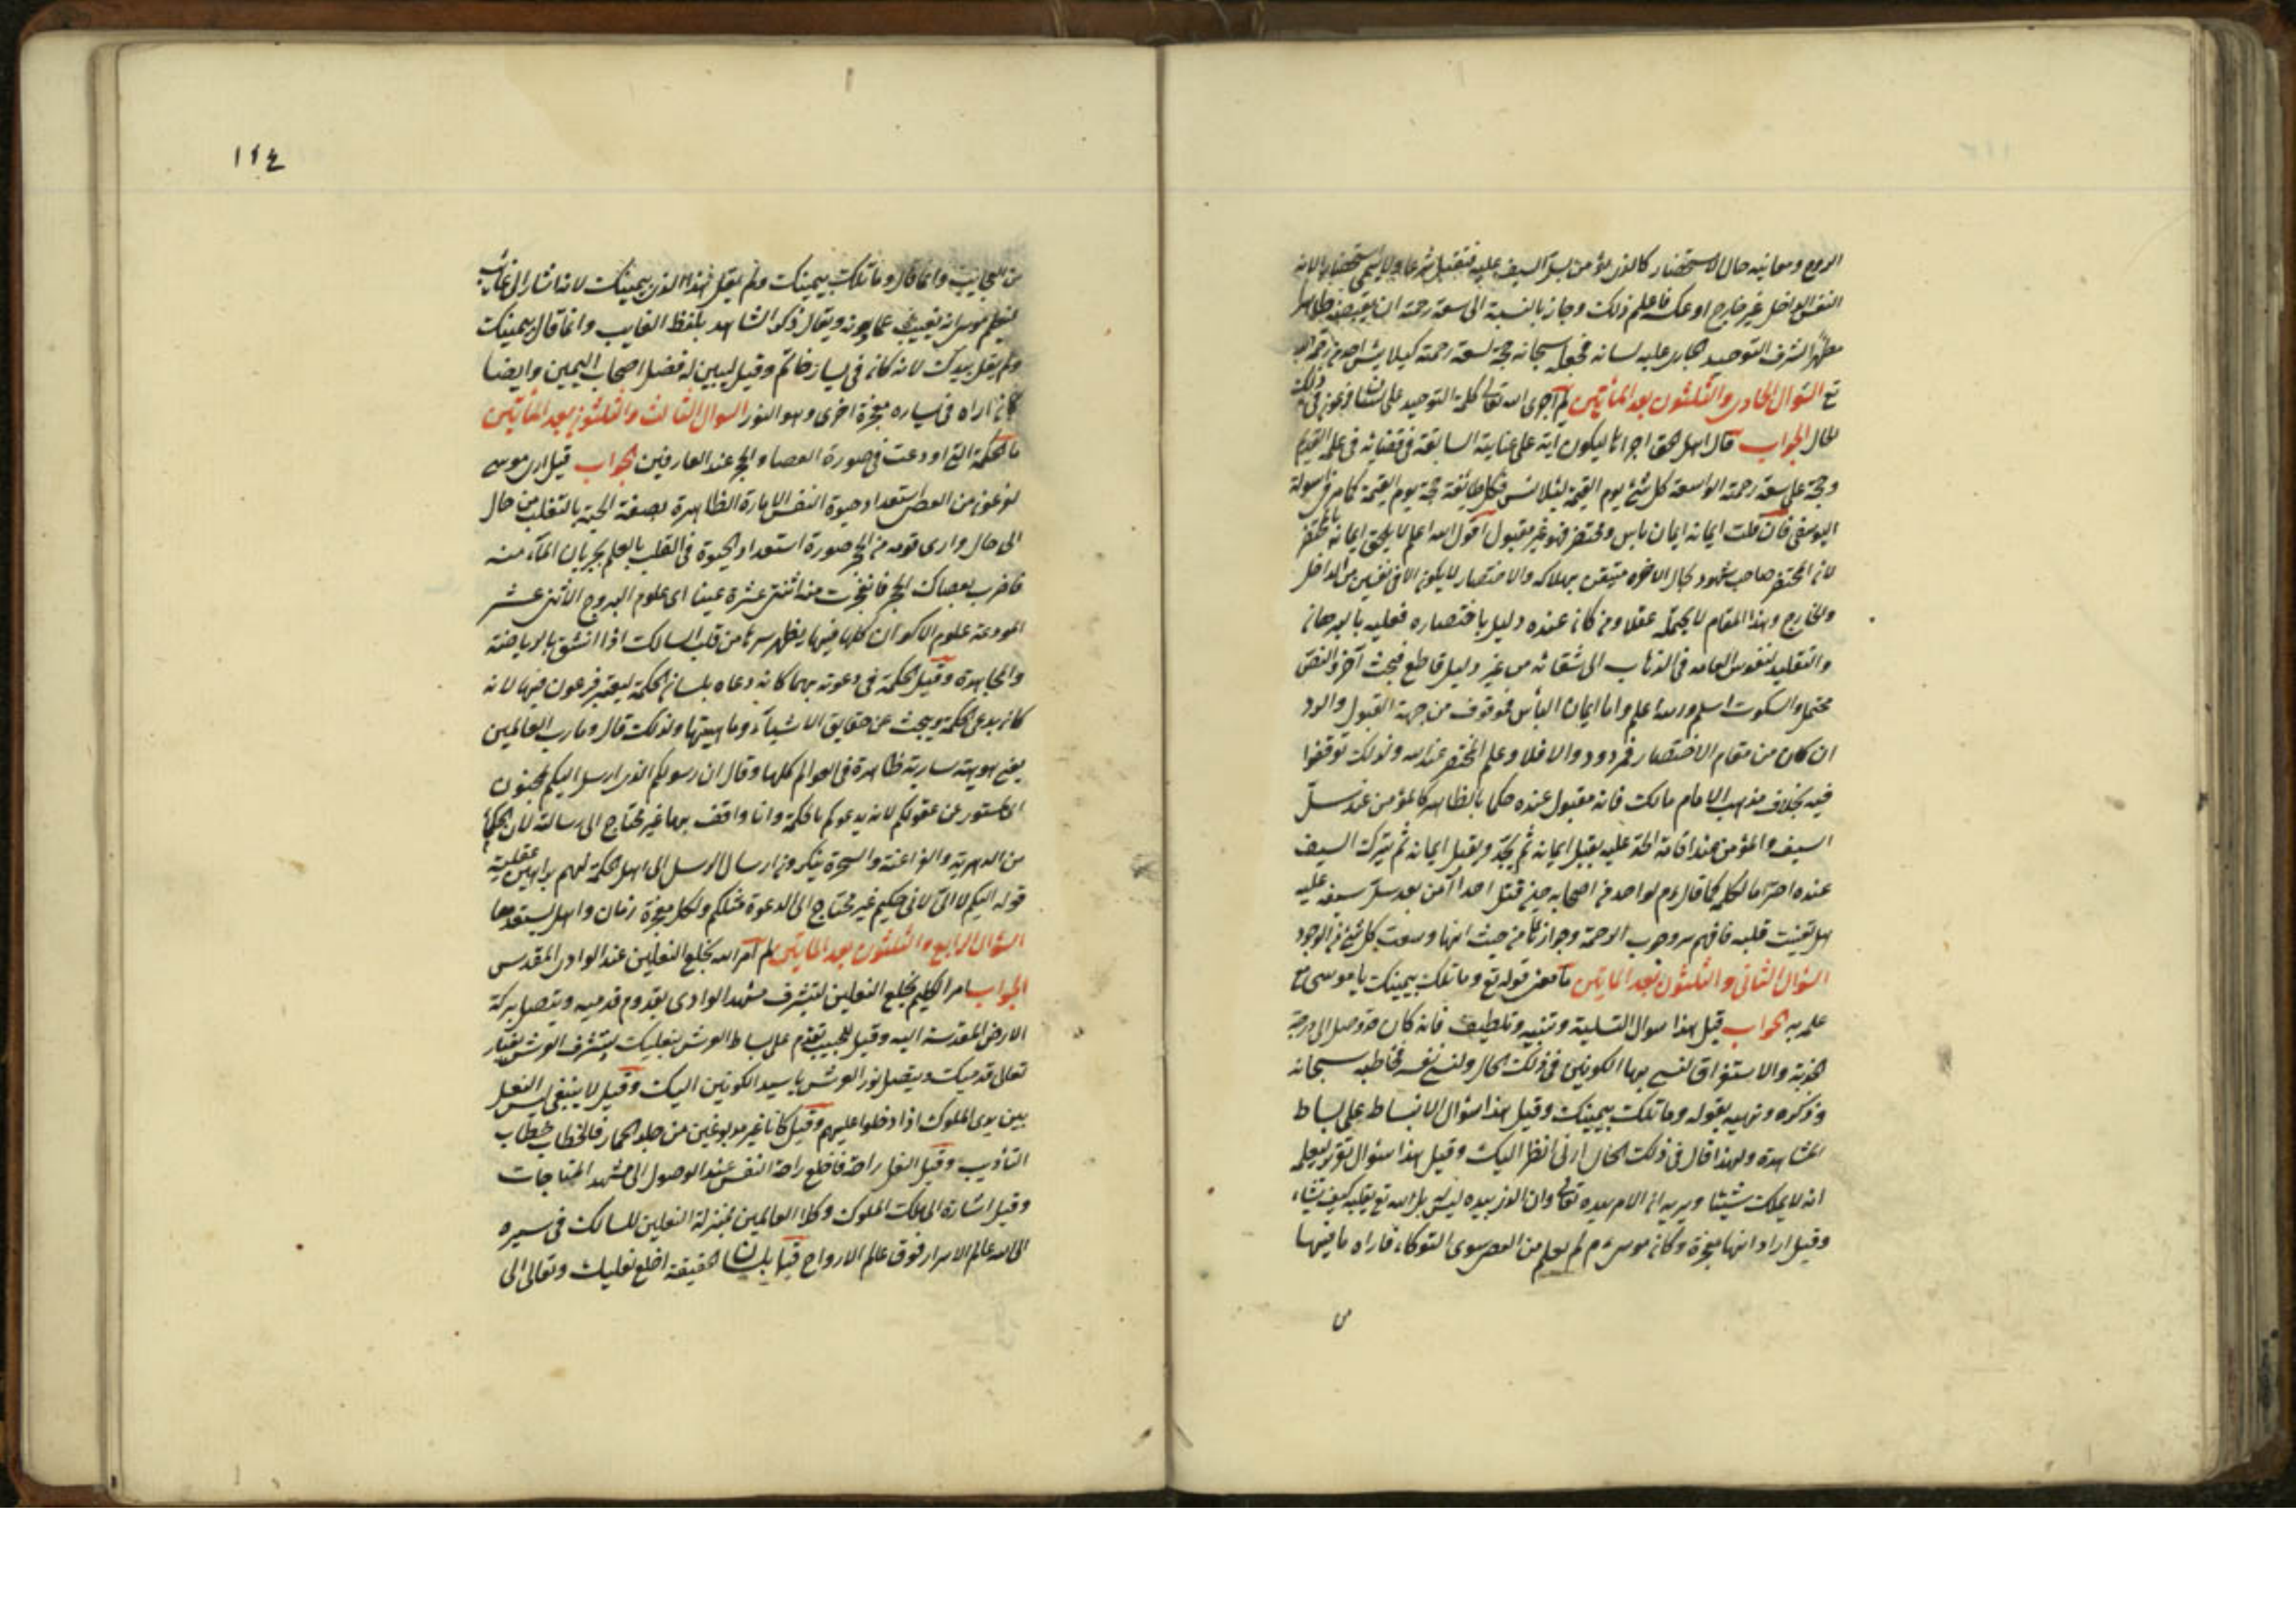 الروح ومعاينه حال الاستحضار كالذى يؤمن بسل السيف عليه فتقبل شرعا ولا يسمى استحضارا لانه
النفس الداخل غير خارج او عكسه فاعلم ذلك وجاز بالنسبة الى سعة رحمته ان يقبضه طاهرا
مطهرا لشرف التوحيد الجارى عليه لسانه فجعله سبحانه حجة لسعة رحمته كيلا ييئس احد من رحمة الله
تع السؤال الحادى والثلثون بعد المأتين لم اجرى الله تعالى كلمة التوحيد على لسان فرعون فى ذلك
الحال الجواب قال اهل الحق اجراها ليكون آية على عنايته السابقة فى قضائه فى علمه القديم
وحجة على سعة رحمته الواسعة كل شئ يوم القيمة لكل طائفة حجة يوم القيمة كما مر فى سؤاله
اليوسفى فان قلت ايمانه ايمان باس ومحتضر فهو غير مقبول اقول الله اعلم لا يلحق ايمانه بالمحتضر
لان المحتضر صاحب شهود لحال الآخرة متيقن بهلاكه والاختصار لا يكون الا فى نفسين من الداخل
والخارج وهذا المقام لا يحتمله عقلا ومن كان عنده دليل باختصاره فعليه بالبرهان
والتقليد لنفوس العامه فى الذهاب الى شقائه من غير دليل قاطع فبحث آخر والنص
محتمل والسكوت اسلم والله اعلم واما ايمان البأس فموقوف من جهة القبول والرد
ان كان من مقام الاختصار فمردود والا فلا وعلم المحتضر عند الله ولذلك توقفوا
فيه بخلاف مذهب الامام مالك فانه مقبول عنده حكما بالظاهر كالمؤمن عند سل
السيف والمؤمن عند اقامة الحد عليه يقبل ايمانه ثم يحد ويقبل ايمانه ثم يترك السيف
عنده احتراما لكلمه كما قال ءم لواحد من اصحابه حين قتل احدا آمن بعد سل سيفه عليه
هل تفتشت قلبه فافهم سر وجوب الرحمة وجوازها من حيث انها وسعت كل شئ فى الوجود
السؤال الثانى والثلثون بعد المايتين ما معنى قوله تع وما تلك بيمينك يا موسى مع
علمه به الجواب قيل هذا سوال التسلية وتنبيه وتلطيف فانه كان قد وصل الى درجة
الجذبة والاستغراق لنسى بها الكونين فى ذلك الحال ولنسى نفسه فخاطبه سبحانه
وذكره ونبهه بقوله وما تلك بيمينك وقيل هذا سؤال الانبساط على بساط
المشاهدة ولهذا قال فى ذلك الحال ارنى انظر اليك وقيل هذا سئوال تقرير ليعلمه
انه لا يملك شيئا ويريه ان الامر بيده تعالى وان الذى بيده ليس له بل الله تع يقلبه كيف يشاء
وقيل اراد انها معجزة وكان موسى ءم لم يعلم من العصى سوى التوكاء فاراه ما فيها
من
١١٤
من العجايب وانما قال وما تلك بيمينك ولم يقل هذا الذى بيمينك لانه اشار الى غائب
ليعلم موسى انه يغيب عما يرونه ويقال ذكر الشاهد بلفظ الغايب وانما قال بيمينك
ولم يقل بيدك لانه كان فى يساره خاتم وقيل ليبين له فضل اصحاب اليمين وايضا
كان اراه فى يساره معجزة اخرى وهو النور السؤال الثالث والثلثون بعد المأتين
ما الحكمة التى اودعت فى صورة العصا والحجر عند العارفين الجواب قيل ارى موسى
لفرعون من العصى استعداد حيوة النفس الامارة الظاهرة بصفة الحية بالتقلب من حال
الى حال وارى قومه من الحجر صورة استعداد الحيوة فى القلب بالعلم بجريان المآء منه
فاضرب بعصاك الحجر فانفجرت منه اثنتى عشرة عينا اى علوم البروج الاثنى عشر
المودعة علوم الاكوان كلها فيها يظهر سرها من قلب السالك اذا انشق بالرياضة
والمجاهدة وقيل الحكمة فى دعوته بهما كانه دعاه بلسان الحكمة ليعتبر فرعون فيها لانه
كان يدعى الحكمة ويبحث عن حقايق الاشياء وماهيتها ولذلك قال وما رب العالمين
يعنى هويته سارية ظاهرة فى العوالم كلها وقال ان رسولكم الذى ارسل اليكم لمجنون
اى مستور عن عقولكم لانه يدعوكم بالحكمة وانا واقف بها غير محتاج الى رسالته لان الحكما
من الدهرية والفراعنة والسحرة ينكرون ارسال الرسل الى اهل الحكمة لهم براهين عقلية
قوله اليكم لا الى لانى حكيم غير محتاج الى الدعوة مثلكم ولكل معجزة زمان واهل يستعد بها
السؤال الرابع والثلثون بعد المايتين لم امر الله بخلع النعلين عند الوادى المقدس
الجواب امر الكليم بخلع النعلين لتشرف مشهد الوادى بقدوم قدميه ويتصل بركة
الارض المقدسة اليه وقيل للحبيب تقدم على بساط العرش بنعليك يتشرف العرش بغبار
تعال قدميك ويتصل نور العرش يا سيد الكونين اليك وقيل لا ينبغى لبس النعل
بين يدى الملوك اذا دخلوا عليهم وقيل كانا غير مدبوغين من جلد الحمار فالخطاب خطاب
التأديب وقيل النعل راحة فاخلع راحة النفس عند الوصول الى مشهد المناجات
وقيل اشارة الى ملك الملوك وكلا العالمين بمنزلة النعلين للسالك فى سيره
الى الله عالم الاسرار فوق عالم الارواح قيل بلسان الحقيقة اخلع نعليك وتعالى الى